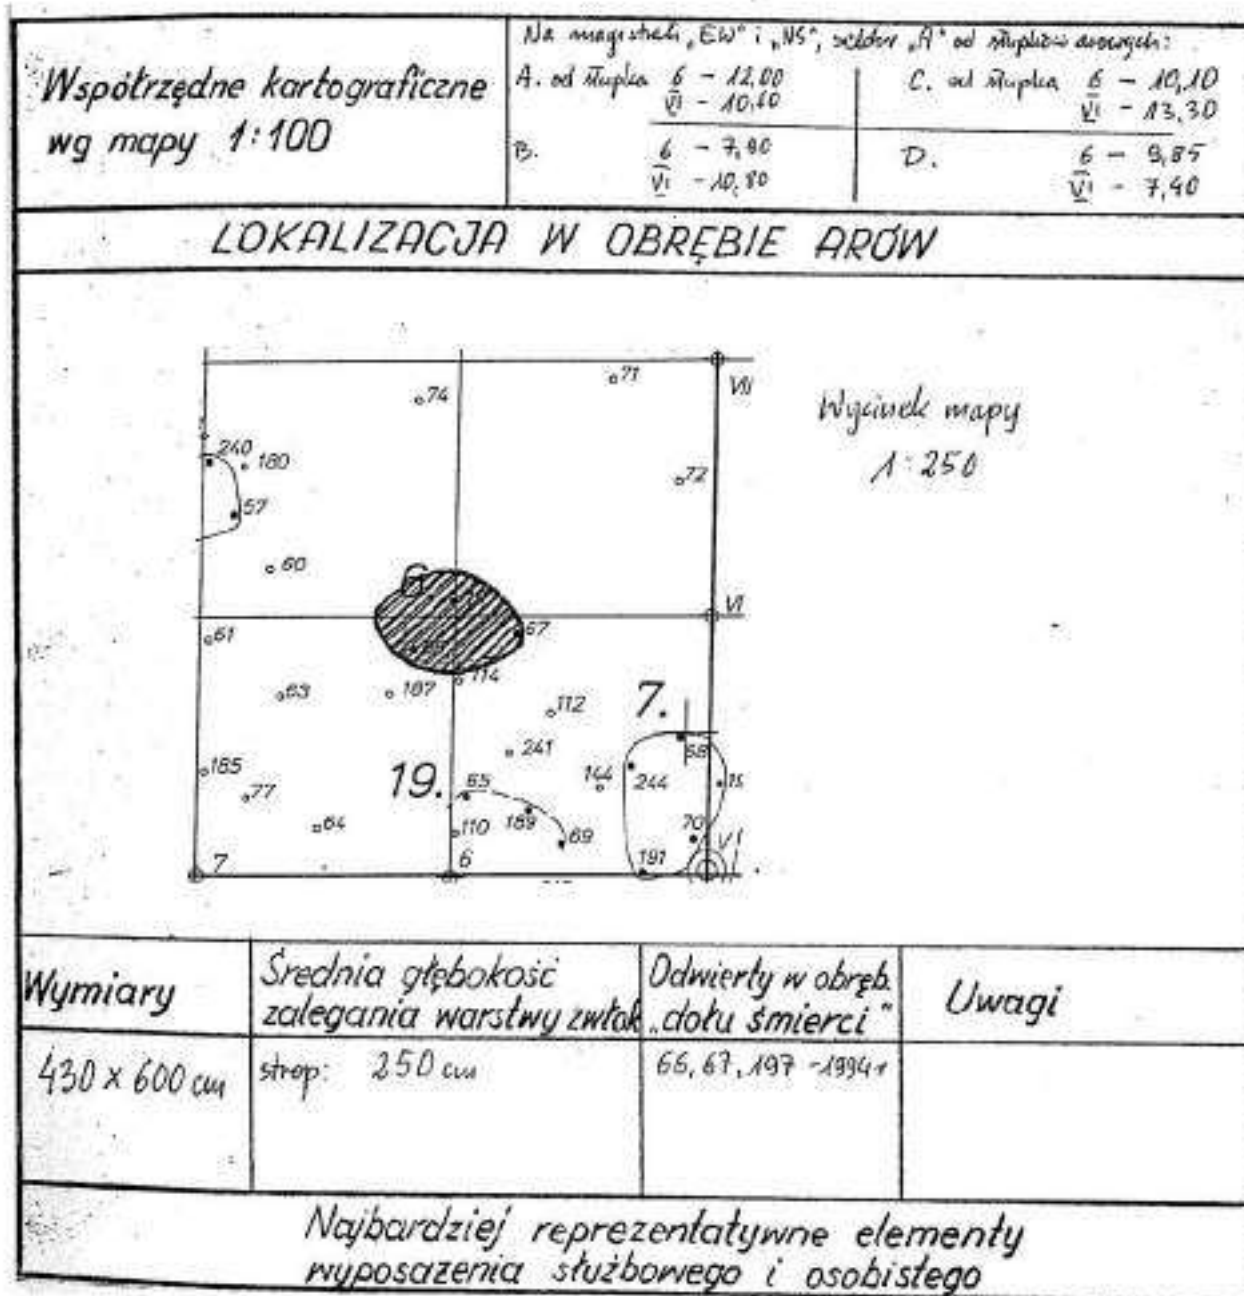 Współrzędne kartograficzne
wg mapy 1:100
Na magistrali „EW" i „NS", sektor „A" od słupków arowych:
A. od słupka 6 - 12,00
VI - 10,60
C. od słupka 6 - 10,10
VI - 13,30
B. 6 - 7,90
VI - 10,80
D. 6 - 9,85
VI - 7,40
LOKALIZACJA W OBRĘBIE ARÓW
Wycinek mapy
1:250
74
71
VII
240
180
72
57
60
VI
61
67
63
187
114
112
7.
241
58
185
19.
65
144
244
15
77
189
70
64
110
69
191
VI
7
6
Wymiary
Średnia głębokość
zalegania warstwy zwłok
Odwierty w obręb.
„dołu śmierci"
Uwagi
430 x 600 cm
strop: 250 cm
66, 67, 197 - 1994 r
Najbardziej reprezentatywne elementy
wyposażenia służbowego i osobistego